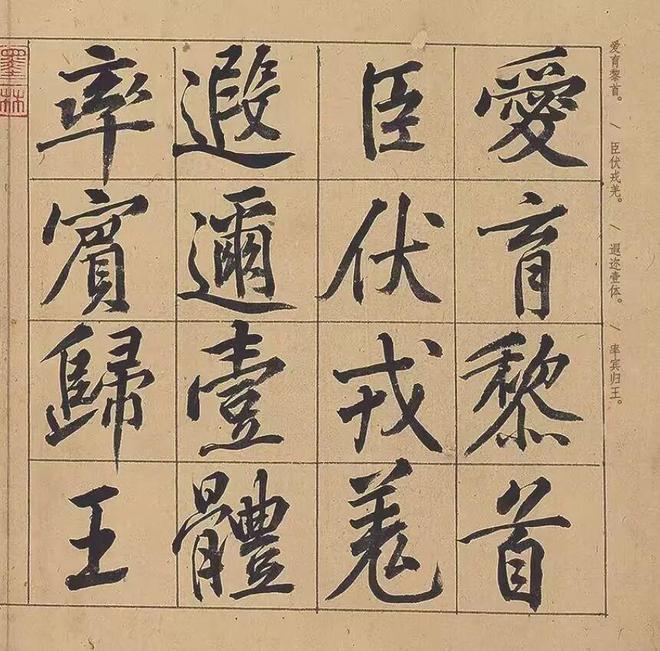 愛育黎首
臣伏戎羌
遐邇壹體
率賓歸王
爱育黎首。/臣伏戎羌。/遐迩壹体。/率宾归王。
墨林